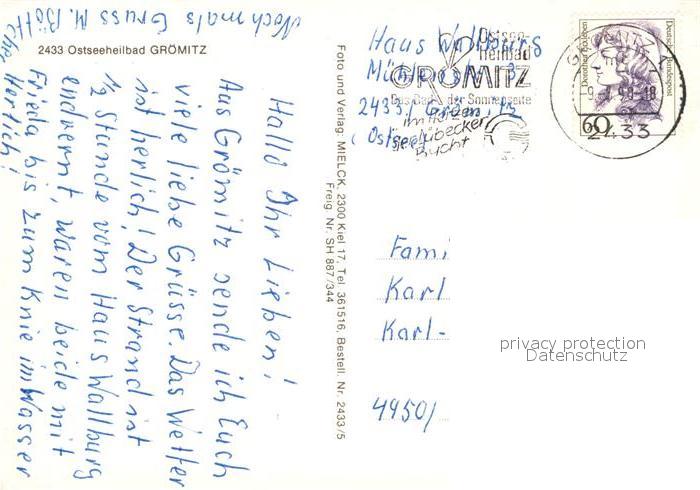 2433 Ostseeheilbad GRÖMITZ
Hallo Ihr Lieben!
Aus Grömitz sende ich Euch
viele liebe Grüsse. Das Wetter
ist herlich! Der Strand ist
1/2 Stunde vom Haus Wallburg
endvernt, waren beide mit
Frieda bis zum Knie im Wasser
Herlich!
Nochmals Gruss M.
Foto und Verlag: MIELCK, 2300 Kiel 17, Tel. 361516, Bestell. Nr. 2433/5
Freig. Nr. SH 887/344
Haus Wallburg
2433/ Grömitz
Ostsee
Ostsee-
heilbad
GRÖMITZ
Das Bad der Sonnenseite
in der
Lübecker
Bucht
GRÖMITZ
2433
Deutsche Bundespost
60
Fami
Karl
Karl-
4950/
privacy protection
Datenschutz